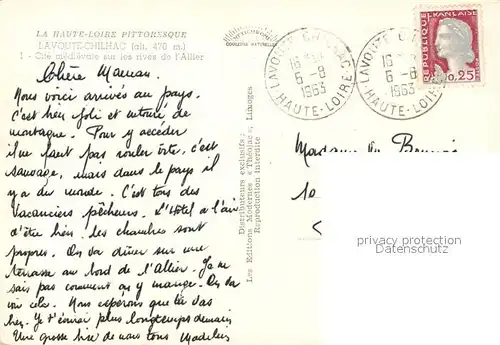 LA HAUTE-LOIRE PITTORESQUE
LAVOUTE-CHILHAC (alt. 470 m.)
1 - Cité médiévale sur les rives de l'Allier
Chère Maman.
Nous voici arrivés au pays.
C'est très joli et entouré de
montagne. Pour y accéder
il ne faut pas rouler vite, c'est
sauvage, mais dans le pays il
y a du monde. C'est tous des
vacanciers pêcheurs. L'Hôtel a l'air
d'être bien, les chambres sont
propres. On va dîner sur une
terrasse au bord de l'Allier. Je ne
sais pas comment on y mange. On va
voir cela. Nous espérons que tu vas
bien. Je t'écrirai plus longtemps demain
Une grosse bise de nous tous Madeleine
COULEURS NATURELLES
Distributeurs exclusifs :
Les Editions Modernes « Théojac », Limoges
Reproduction Interdite
LAVOUTE CHILHAC
6-8
1963
HAUTE-LOIRE
LAVOUTE
6-8
1963
HAUTE-LOIRE
REPUBLIQUE
FRANÇAISE
0,25
Madame
10
copyright protection
Datenschutz